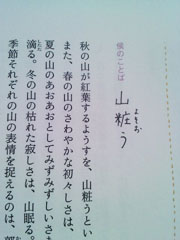 候のことば
山粧う
よそお
秋の山が紅葉するようすを、山粧うとい
また、春の山のさわやかな初々しさは、
夏の山のあおあおとしてみずみずしいさま
滴る。冬の山の枯れた寂しさは、山眠る。
季節それぞれの山の表情を捉えるのは、